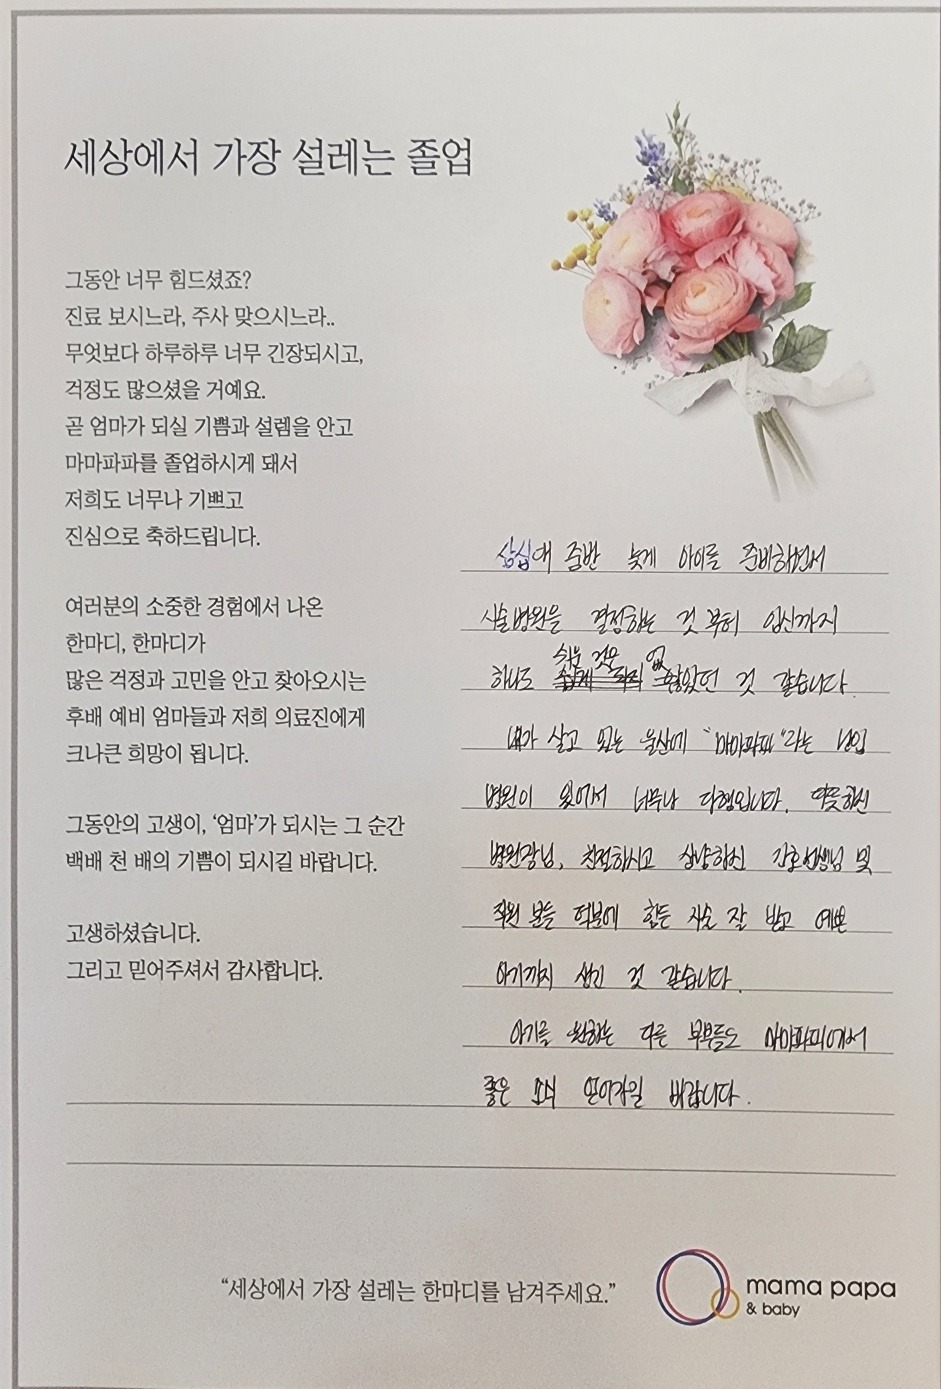 세상에서 가장 설레는 졸업
그동안 너무 힘드셨죠?
진료 보시느라, 주사 맞으시느라..
무엇보다 하루하루 너무 긴장되시고,
걱정도 많으셨을 거예요.
곧 엄마가 되실 기쁨과 설렘을 안고
마마파파를 졸업하시게 돼서
저희도 너무나 기쁘고
진심으로 축하드립니다.
여러분의 소중한 경험에서 나온
한마디, 한마디가
많은 걱정과 고민을 안고 찾아오시는
후배 예비 엄마들과 저희 의료진에게
크나큰 희망이 됩니다.
그동안의 고생이, ‘엄마’가 되시는 그 순간
백배 천 배의 기쁨이 되시길 바랍니다.
고생하셨습니다.
그리고 믿어주셔서 감사합니다.
삼십대 중반 늦게 아이를 준비하면서
시술병원을 결정하는 것 부터 임신까지
하나도 쉬운 것은 없었던 것 같습니다.
내가 살고 있는 울산에 "마마파파"라는 난임
병원이 있어서 너무나 다행입니다. 따뜻하신
병원장님, 친절하시고 상냥하신 간호선생님 및
직원 분들 덕분에 힘든 시술 잘 받고 예쁜
아기까지 생긴 것 같습니다.
아기를 원하는 다른 부부들도 마마파파에서
좋은 소식 얻어가길 바랍니다.
“세상에서 가장 설레는 한마디를 남겨주세요.”
mama papa
& baby